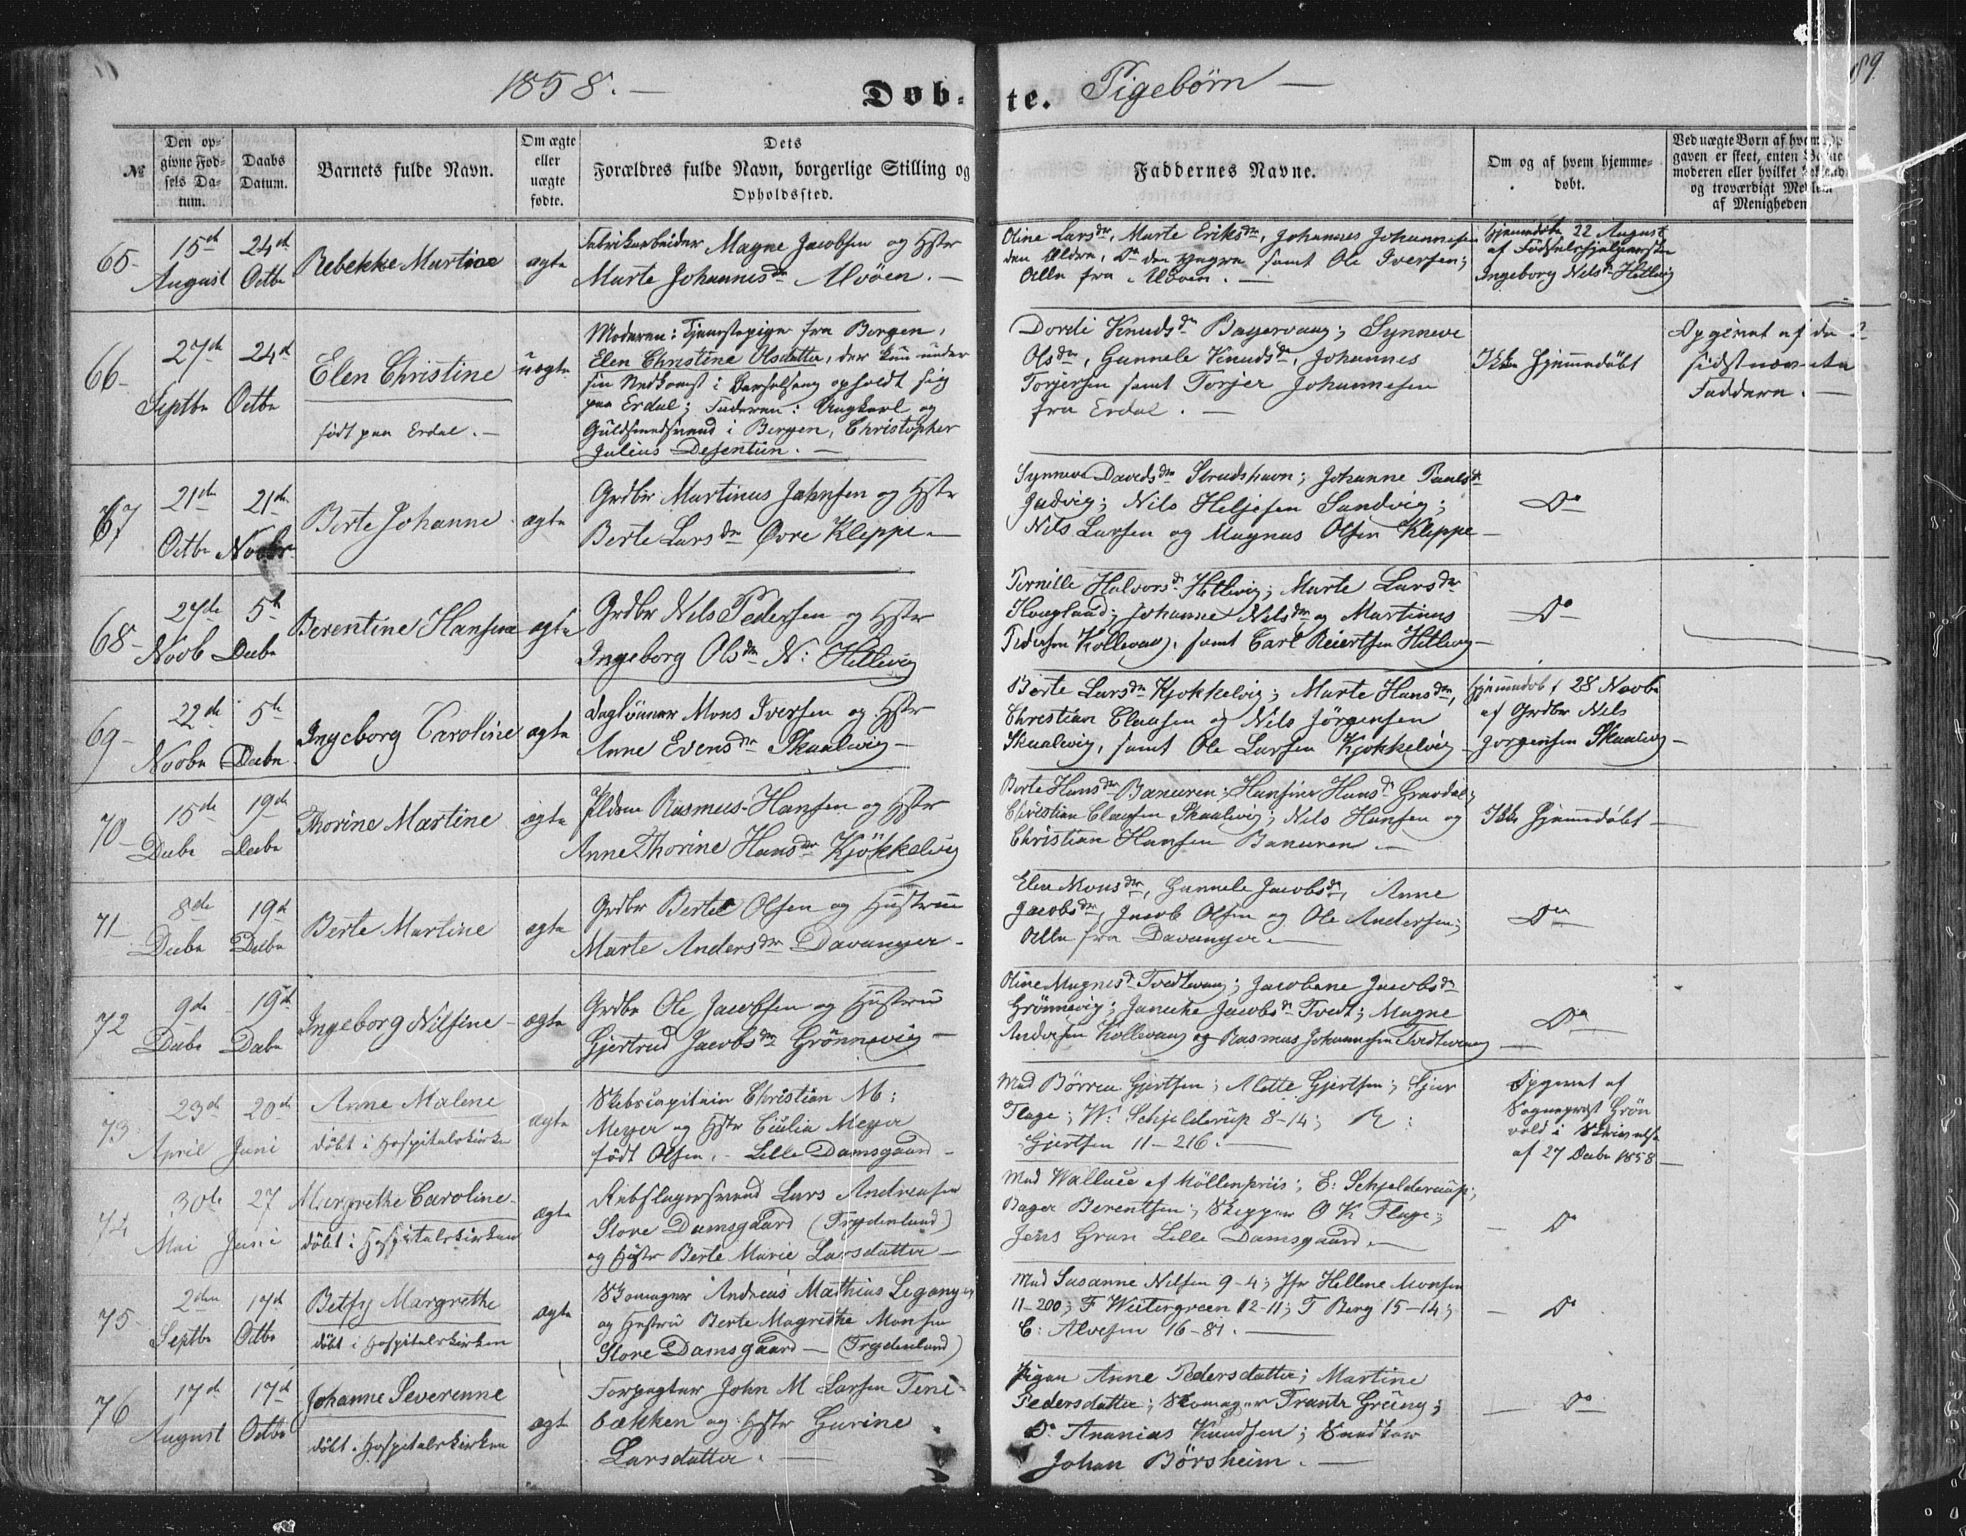 1858. —
Døb-te. Pigebørn —
89
№
Den op-
givne Fød-
sels Da-
tum.
Daabs
Datum.
Barnets fulde Navn.
Om ægte
eller
uægte
fødte.
Dets
Forældres fulde Navn, borgerlige Stilling og
Opholdssted.
Faddernes Navne.
Om og af hvem hjemme-
døbt.
Ved uægte Børn af hvem Op-
gaven er skeet, enten
moderen eller hvilket
og troværdigt Medlem
af Menigheden.
65-
15de
August
24de
Octbr
Rebekke Martine
ægte
Fabrikarbeider Magne Jacobsen og Hstr
Marte Johannesdr Alvøen. —
Oline Larsdr, Marte Eriksdr, Johannes Johannesen
den Ældre, Do den yngre samt Ole Iversen;
Alle fra Alvøen. —
Hjemmedøbt 22 August
af Fødselshjelpersken
Ingeborg Nilsdr Hetlvig
66-
27de
Septbr
24de
Octbr
Elen Christine
født paa Erdal. —
uægte
Moderen: Tjenestepige fra Bergen,
Elen Christine Olsdatter, der kun under
sin Nedkomst i Barselseng opholdt sig
paa Erdal; Faderen: Ungkarl og
Guldsmedsvend i Bergen, Christopher
Julius Desentin. —
Dordi Knudsdr Breivik; Synneve
Olsdr, Gunnele Knudsdr, Johannes
Torjersen samt Torjer Johannesen
fra Erdal. —
Ikke Hjemmedøbt
Opgivet af de 2
sidstnævnte
Faddere. —
67
21de
Octbr
21de
Novbr
Berte Johanne
ægte
Grdbr Martinus Johnsen og Hstr
Berte Larsdr Øvre Kleppe —
Synneve Davidsdr Strudshavn; Johanne Paulsdr
Nils Heljesen Sandvig;
Nils Larsen og Magnus Olsen Kleppe —
Do
68-
27de
Novb
5te
Decbr
Berentine Hansine
ægte
Grdbr Nils Pedersen og Hstr
Ingeborg Olsdr N: Hetlevig
Pernille Halvorsdr Hetlvig; Marte Larsdr
Haagland; Johanne Nilsdr og Martinus
Pedersen Kollevaag, samt Carl Reiertsen Hetlevig —
Do
69-
22de
Novbr
5te
Decbr
Ingeborg Caroline
ægte
Daglønner Mons Iversen og Hstr
Anne Evensdr Skaalevig —
Berte Larsdr Kjøkkelvig; Marte Hansdr,
Christian Clausen og Nils Jørgensen
Skaalevig, samt Ole Larsen Kjøkkelvig —
Hjemmedøbt 28 Novbr
af Grdbr Nils
Jørgensen Skaalevig —
70-
15de
Decbr
19de
Decbr
Thorine Martine
ægte
Pldsm Rasmus Hansen og Hstr
Anne Thorine Hansdr Kjøkkelvig
Berte Hansdr Baneuren; Hansine Hansdr Gravdal;
Christian Clausen Skaalevig; Nils Hansen og
Christian Hansen Baneuren. —
Ikke Hjemmedøbt —
71-
8de
Decbr
19de
Decbr
Berte Martine
ægte
Grdbr Bertel Olsen og Hustrue
Marte Andersdr Davanger —
Elen Monsdr, Gunnele Jacobsdr, Anne
Jacobsdr, Jacob Olsen og Ole Andersen;
Alle fra Davanger. —
Do
72
9de
Decbr
19de
Decbr
Ingeborg Nilsine —
ægte
Grdbr Ole Jacobsen og Hustrue
Gjertrud Jacobsdr Grønnevig —
Oline Magnesdr Tvedtevaag; Jacobine Jacobsdr
Grønnevig; Janike Jacobsdr Tvedt; Magne
Andersen Kollevaag og Rasmus Johannesen Tvedtevaag —
Do
73.
23de
April
20de
Juni
Anne Malene
døbt i Hospitalskirke
ægte
Skibscapitain Christian M:
Meyer og Hstr Cecilia Meyer
født Olsen. — Lille Damsgaard —
Mad Børrea Gjertsen; Alette Gjertsen; Sjur
Flage; W: Schjelderup 8-14; R:
Gjertsen 11-216. —
Opgivet af
Sogneprest Grøn
vold i Skrivelse
af 27 Decbr 1858 —
74
30te
Mai
27
Juni
Margrethe Caroline
døbt i Hospitalskirken
ægte
Rebslagersvend Lars Andreasen
Store Damsgaard (Frydenlund)
og Hstr Berte Marie Larsdatter —
Mad Wallace af Møllenpriis; E: Schjelderup;
Bager Berentsen; Skipper O K Flage;
Jens Gran Lille Damsgaard. —
— Do
75
2den
Septbr
17de
Octbr
Betsy Margrethe
døbt i Hospitalskirken
ægte
Skomager Andreas Mathias Leganger
og Hustru Berte Magrethe Monsen
Store Damsgaard — (Frydenlund)
Mad Susanne Nilsen 9-4; Jfr Helline Monsen
11-200; F Wietergreen 12-11; T Berg 15-14;
C: Alvesen 16-81. —
— Do
76
17de
August
17de
Octbr
Johanne Severenne
døbt i Hospitalskirken
ægte
Forpagter John M Larsen Teni-
bækken og Hstr Gurine
Larsdatter. —
Pigen Anne Pedersdatter; Martine
Pedersdatter; Skomager Frantz Grüny;
Do Ananias Knudsen;
Johan Børsheim. —
— Do —